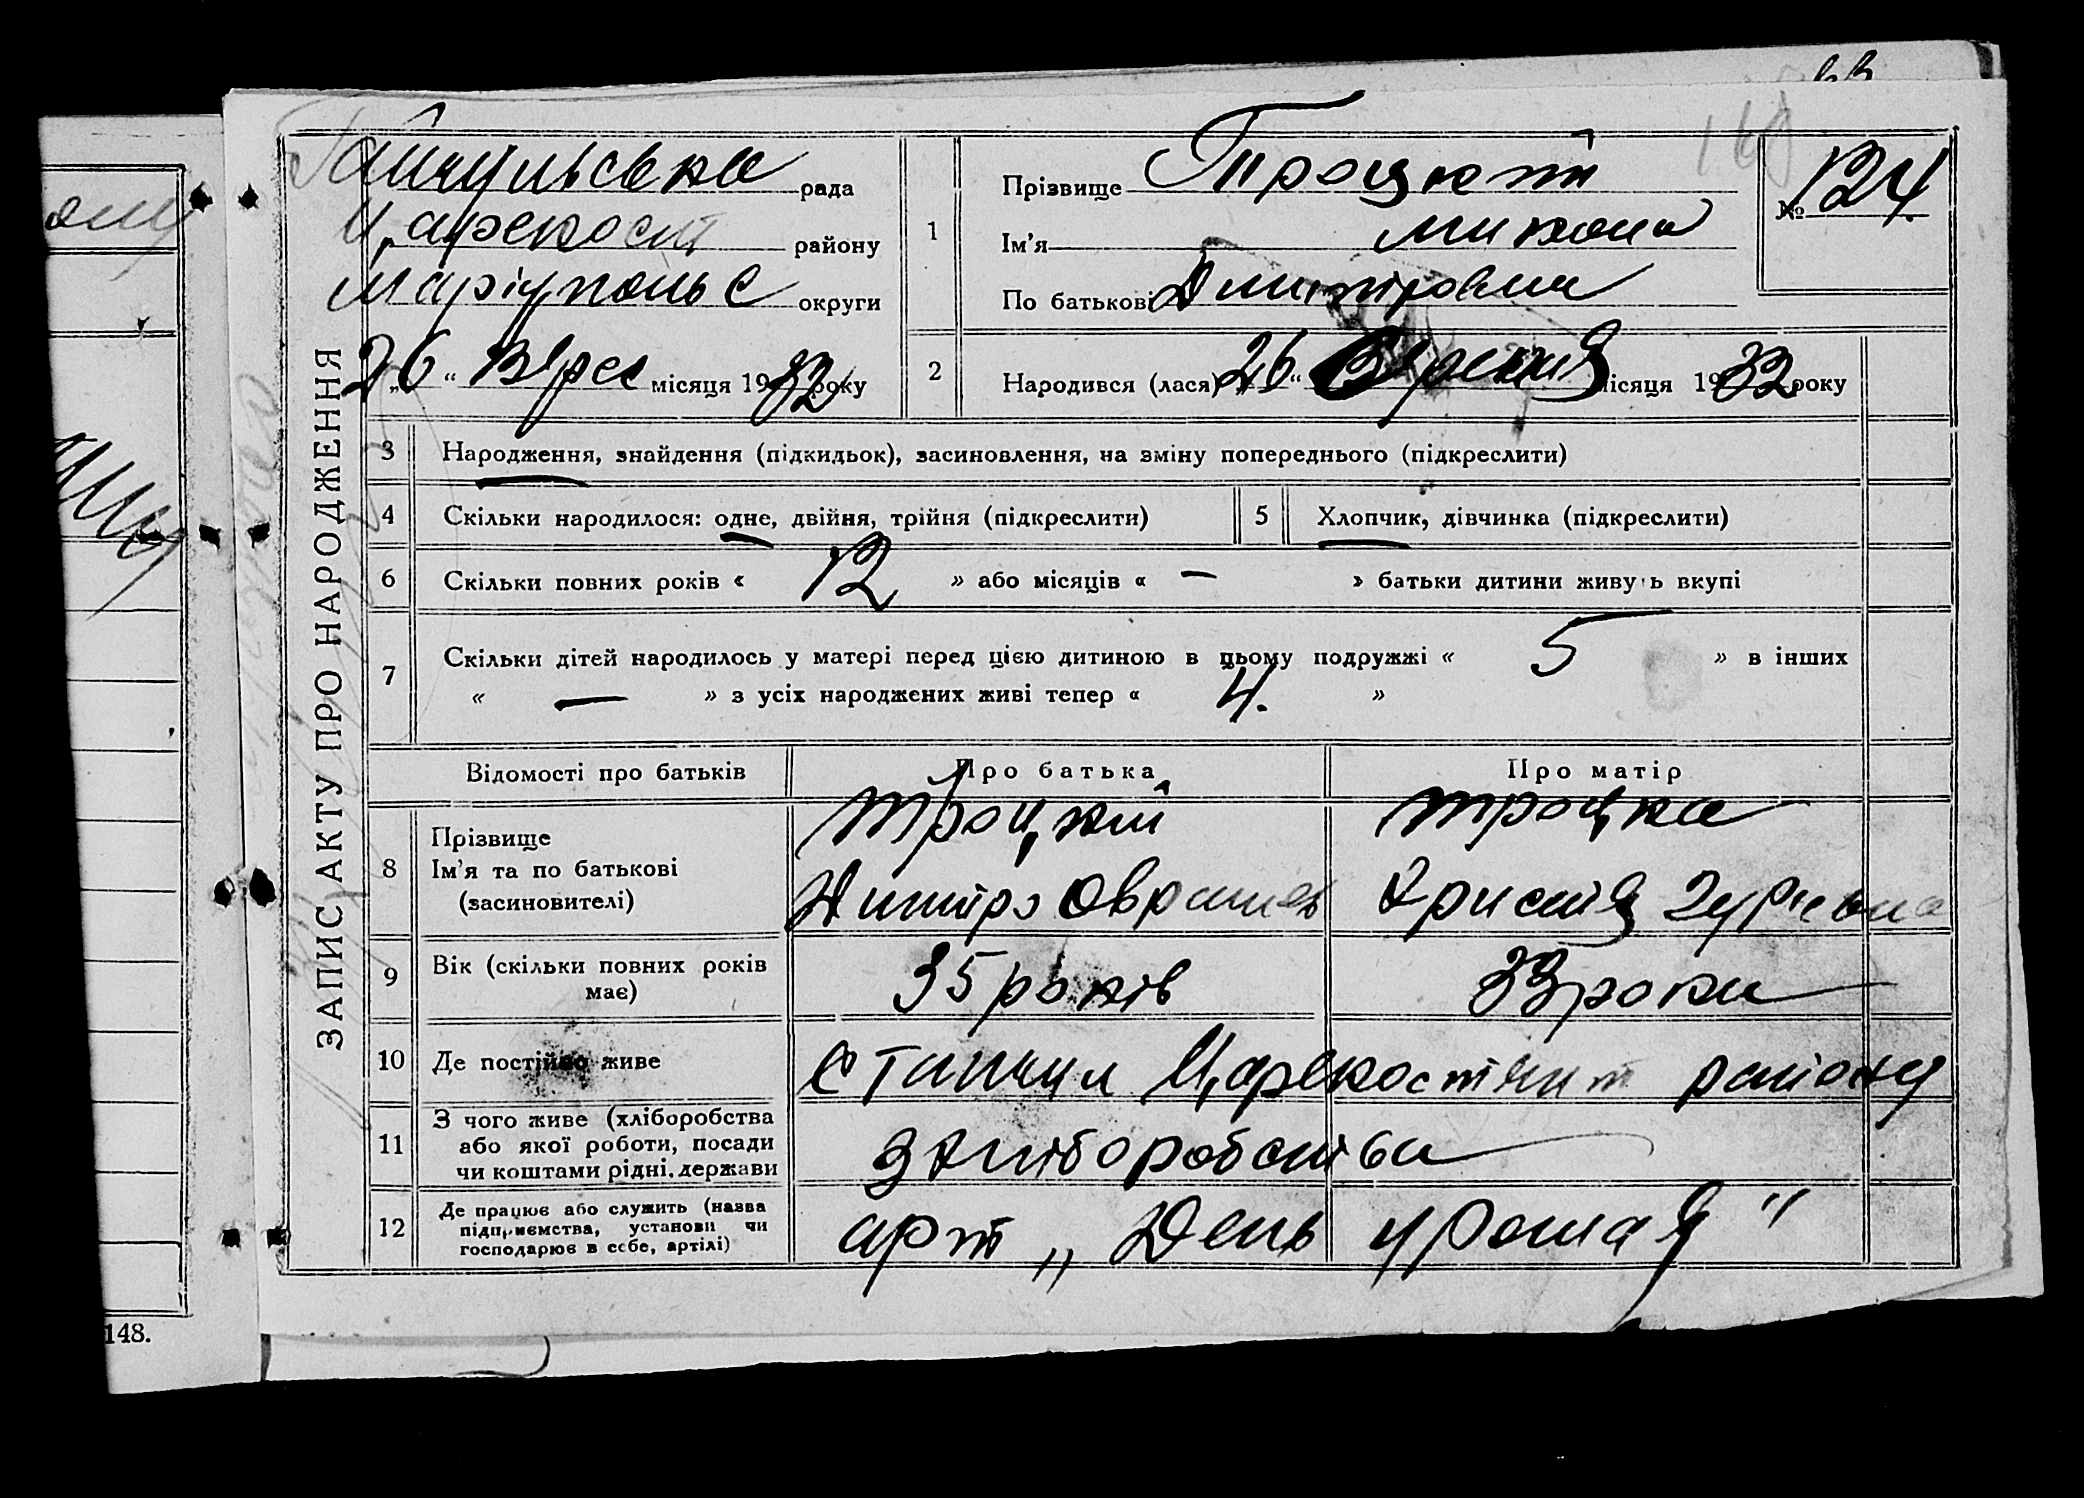 Гайчульська рада
Царекост району
Маріупольс округи
„26“ Верес місяця 1932 року
ЗАПИС АКТУ ПРО НАРОДЖЕННЯ
№ 124
1 Прізвище Троцький
Ім'я Микола
По батькові Дмитрович
2 Народився (лася) „26“ Вересня місяця 1932 року
3 Народження, знайдення (підкидьок), засиновлення, на зміну попереднього (підкреслити)
4 Скільки народилося: одне, двійня, трійня (підкреслити) 5 Хлопчик, дівчинка (підкреслити)
6 Скільки повних років « 12 » або місяців « — » батьки дитини живуть вкупі
7 Скільки дітей народилось у матері перед цією дитиною в цьому подружжі « 5 » в інших
« — » з усіх народжених живі тепер « 4. »
Відомості про батьків Про батька Про матір
8 Прізвище Троцкий Троцка
Ім'я та по батькові Дмитро
(засиновителі)
9 Вік (скільки повних років має) 35 років 33 роки
10 Де постійно живе району
11 З чого живе (хліборобства
або якої роботи, посади
чи коштами рідні, держави
з хліборобства
12 Де працює або служить (назва
підприємства, установи чи
господарює в себе, артілі)
арт „День урожая"
148.